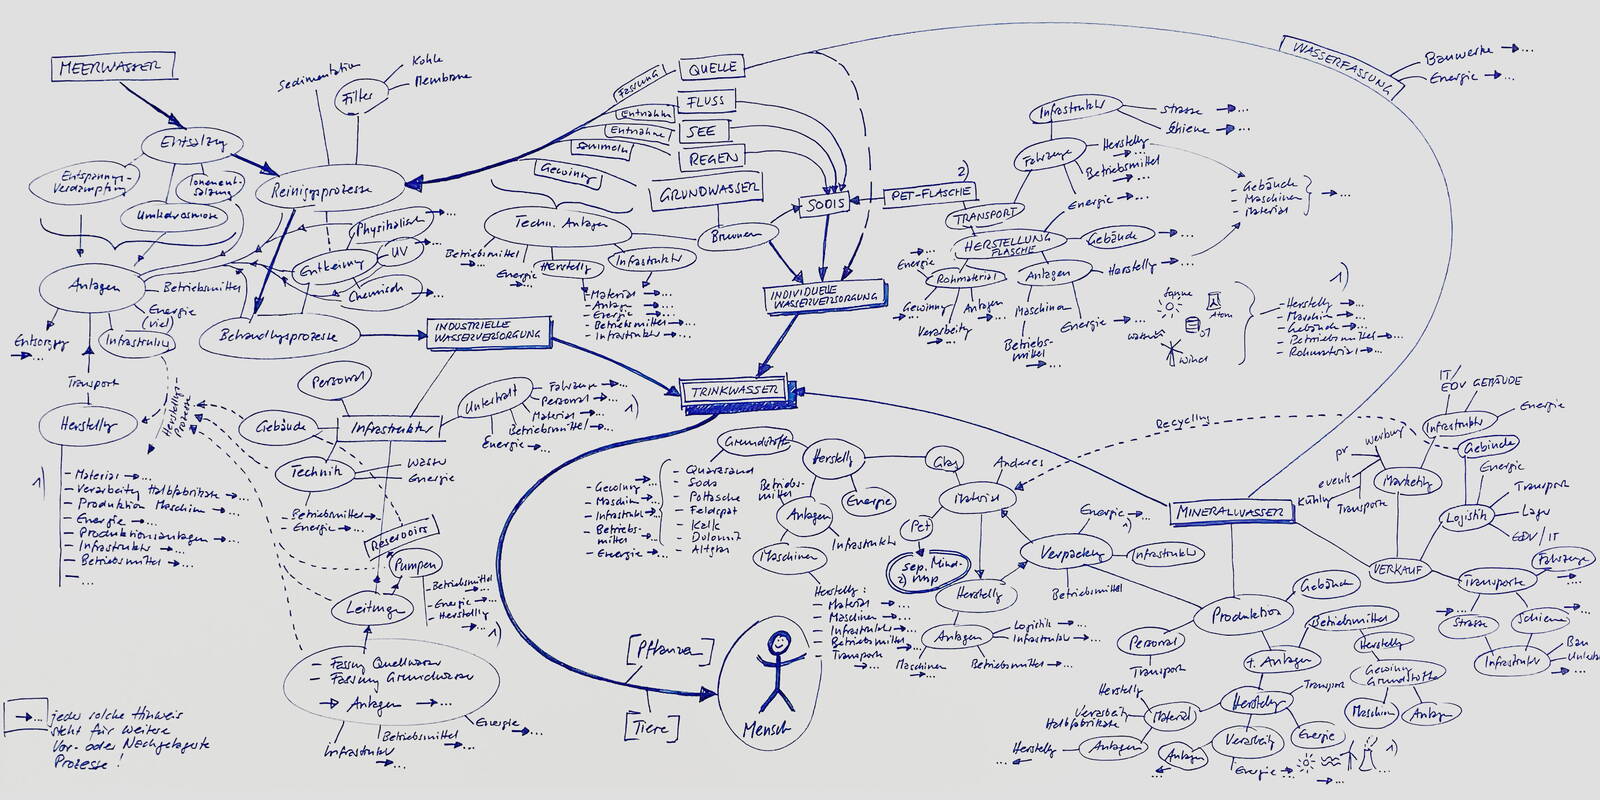 MEERWASSER
Entsalzung
Entspannungs-
Verdampfung
Ionenent-
salzung
Umkehrosmose
Sedimentation
Filter
Kohle
Membrane
Reinigungsprozesse
Physikalisch →...
UV →...
Entkeimung
Chemisch →...
Anlagen
Betriebsmittel
Energie
(viel)
Infrastruktur
Entsorgung
→...
Transport
Herstellung
Herstellungs-
Prozesse
1)
- Material →...
- Verarbeitung Halbfabrikate →...
- Produktion Maschinen →...
- Energie →...
- Produktionsanlagen →...
- Infrastruktur →...
- Betriebsmittel →...
- ...
Behandlungsprozesse
INDUSTRIELLE
WASSERVERSORGUNG
Personal
Gebäude
Infrastruktur
Technik
Wasser
Energie
Betriebsmittel →...
Energie →...
Unterhalt
Fahrzeuge →...
Personal →...
Material →...
Betriebsmittel →...
Energie →...
1)
Reservoirs
Pumpen
Betriebsmittel
→...
Energie →...
Herstellung
→...
1)
Leitungen
- Fassung Quellwasser
- Fassung Grundwasser
→ Anlagen →...
Infrastruktur
→...
Betriebsmittel
→...
Energie →...
→... jeder solche Hinweis
steht für weitere
Vor- oder Nachgelagerte
Prozesse!
Fassung
QUELLE
Entnahme
FLUSS
Entnahme
SEE
Sammeln
REGEN
Gewinnung
GRUNDWASSER
Techn. Anlagen
Betriebsmittel
→...
Energie
→...
Herstellung
Infrastruktur
→...
- Material →...
- Anlagen →...
- Energie →...
- Betriebsmittel →...
- Infrastruktur →...
Brunnen
SODIS
PET-FLASCHE
2)
INDIVIDUELLE
WASSERVERSORGUNG
TRINKWASSER
[Pflanzen]
[Tiere]
Mensch
WASSERFASSUNG
Bauwerke →...
Energie →...
Infrastruktur
Strasse →...
Schiene →...
Fahrzeuge
Herstellung
→...
Betriebsmittel
→...
Energie →...
TRANSPORT
- Gebäude
- Maschinen
- Material
→...
HERSTELLUNG
FLASCHE
Gebäude →...
Energie
→...
Rohmaterial
Anlagen
Herstellung →...
Gewinnung
→...
Verarbeitung
→...
Anlagen
→...
Maschinen
Betriebs-
mittel
→...
Energie →...
Sonne
Atom
Öl
Wasser
Wind
1)
- Herstellung →...
- Maschinen →...
- Gebäude →...
- Betriebsmittel →...
- Rohmaterial →...
Recycling
Grundstoffe
- Quarzsand
- Soda
- Pottasche
- Feldspat
- Kalk
- Dolomit
- Altglas
- Gewinnung →...
- Maschinen →...
- Infrastruktur →...
- Betriebs-
mittel →...
- Energie →...
Herstellung
Betriebs-
mittel
Anlagen
Energie
Infrastruktur
Maschinen
Herstellung:
- Material →...
- Maschinen →...
- Infrastruktur →...
- Betriebsmittel →...
- Transport
→...
Glas
Anderes
Material
Pet
sep. Mind-
2) map
Herstellung
Anlagen
Logistik →...
Infrastruktur →...
Maschinen
→...
Betriebsmittel →...
Verpackung
Energie →...
1)
Infrastruktur
Betriebsmittel
MINERALWASSER
Produktion
Gebäude
Personal
Transport
Betriebsmittel
Herstellung
Gewinnung
Grundstoffe
Maschinen
Anlagen
t. Anlagen
Herstellung
Transport
Material
Herstellung
Verarbeitung
Halbfabrikate
Anlagen
Herstellung
←...
Anlagen
←...
Verarbeitung
Energie →...
Energie
1)
→...
VERKAUF
Marketing
Werbung
PR
events
Kühlung
Transporte
IT/
EDV
GEBÄUDE
Infrastruktur
Energie
Gebäude
Energie
Transport
Lager
EDV/IT
Logistik
Transporte
Fahrzeuge
→...
Strasse
→...
Schiene
→...
Infrastruktur
Bau
→...